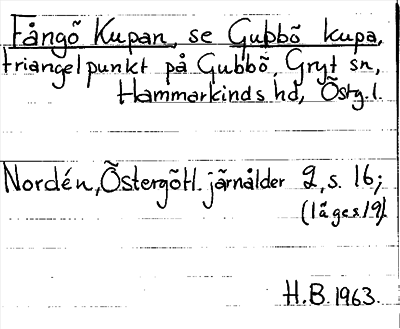 Fångö Kupan, se Gubbö kupa,
triangelpunkt på Gubbö, Gryt sn,
Hammarkinds hd, Östg.l.
Nordén, Östergötl. järnålder 2, s. 16;
H.B. 1963.